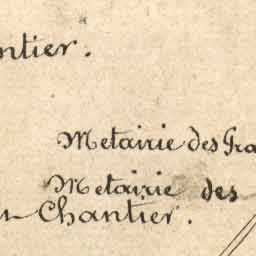 ntier.
Metairie des Gra
Metairie des
Chantier.